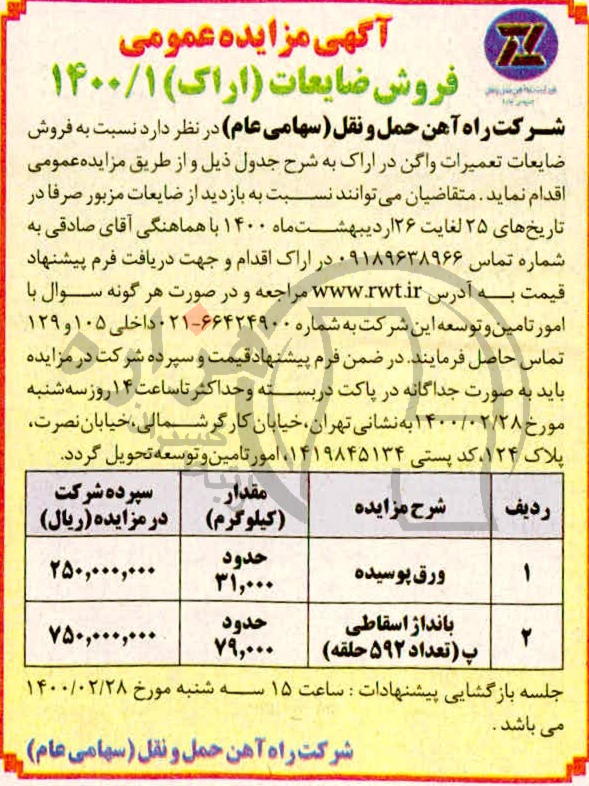 آگهی مزایده عمومی
فروش ضایعات (اراک) ۱۴۰۰/۱
شرکت راه آهن حمل و نقل (سهامی عام) در نظر دارد نسبت به فروش
ضایعات تعمیرات واگن در اراک به شرح جدول ذیل و از طریق مزایده عمومی
اقدام نماید. متقاضیان می‌توانند نسبت به بازدید از ضایعات مزبور صرفا در
تاریخ‌های ۲۵ لغایت ۲۶ اردیبهشت‌ماه ۱۴۰۰ با هماهنگی آقای صادقی به
شماره تماس ۰۹۱۸۹۶۳۸۹۶۶ در اراک اقدام و جهت دریافت فرم پیشنهاد
قیمت به آدرس www.rwt.ir مراجعه و در صورت هر گونه سوال با
امور تامین و توسعه این شرکت به شماره ۶۶۴۲۴۹۰۰-۰۲۱ داخلی ۱۰۵ و ۱۲۹
تماس حاصل فرمایند. در ضمن فرم پیشنهاد قیمت و سپرده شرکت در مزایده
باید به صورت جداگانه در پاکت دربسته و حداکثر تا ساعت ۱۴ روز سه‌شنبه
مورخ ۱۴۰۰/۰۲/۲۸ به نشانی تهران، خیابان کارگر شمالی، خیابان نصرت،
پلاک ۱۲۴، کد پستی ۱۴۱۹۸۴۵۱۳۴، امور تامین و توسعه تحویل گردد.
ردیف شرح مزایده مقدار (کیلوگرم) سپرده شرکت در مزایده (ریال)
۱ ورق پوسیده حدود ۳۱,۰۰۰ ۲۵۰,۰۰۰,۰۰۰
۲ بانداژ اسقاطی پ (تعداد ۵۹۲ حلقه) حدود ۷۹,۰۰۰ ۷۵۰,۰۰۰,۰۰۰
جلسه بازگشایی پیشنهادات : ساعت ۱۵ سه شنبه مورخ ۱۴۰۰/۰۲/۲۸
می باشد .
شرکت راه آهن حمل و نقل (سهامی عام)